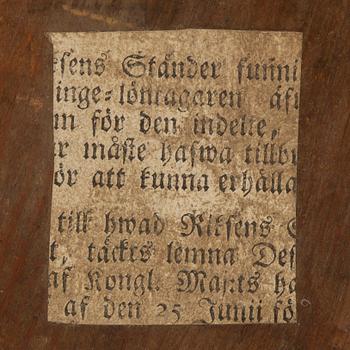 ksens Ständer funni
inge-löntagaren äfw
m för den indelte,
er måste hafwa tillbu
ör att kunna erhålla
till hwad Riksens S
t, täckts lemna Des
af Kongl. Maj:ts ha
af den 25 Junii fö